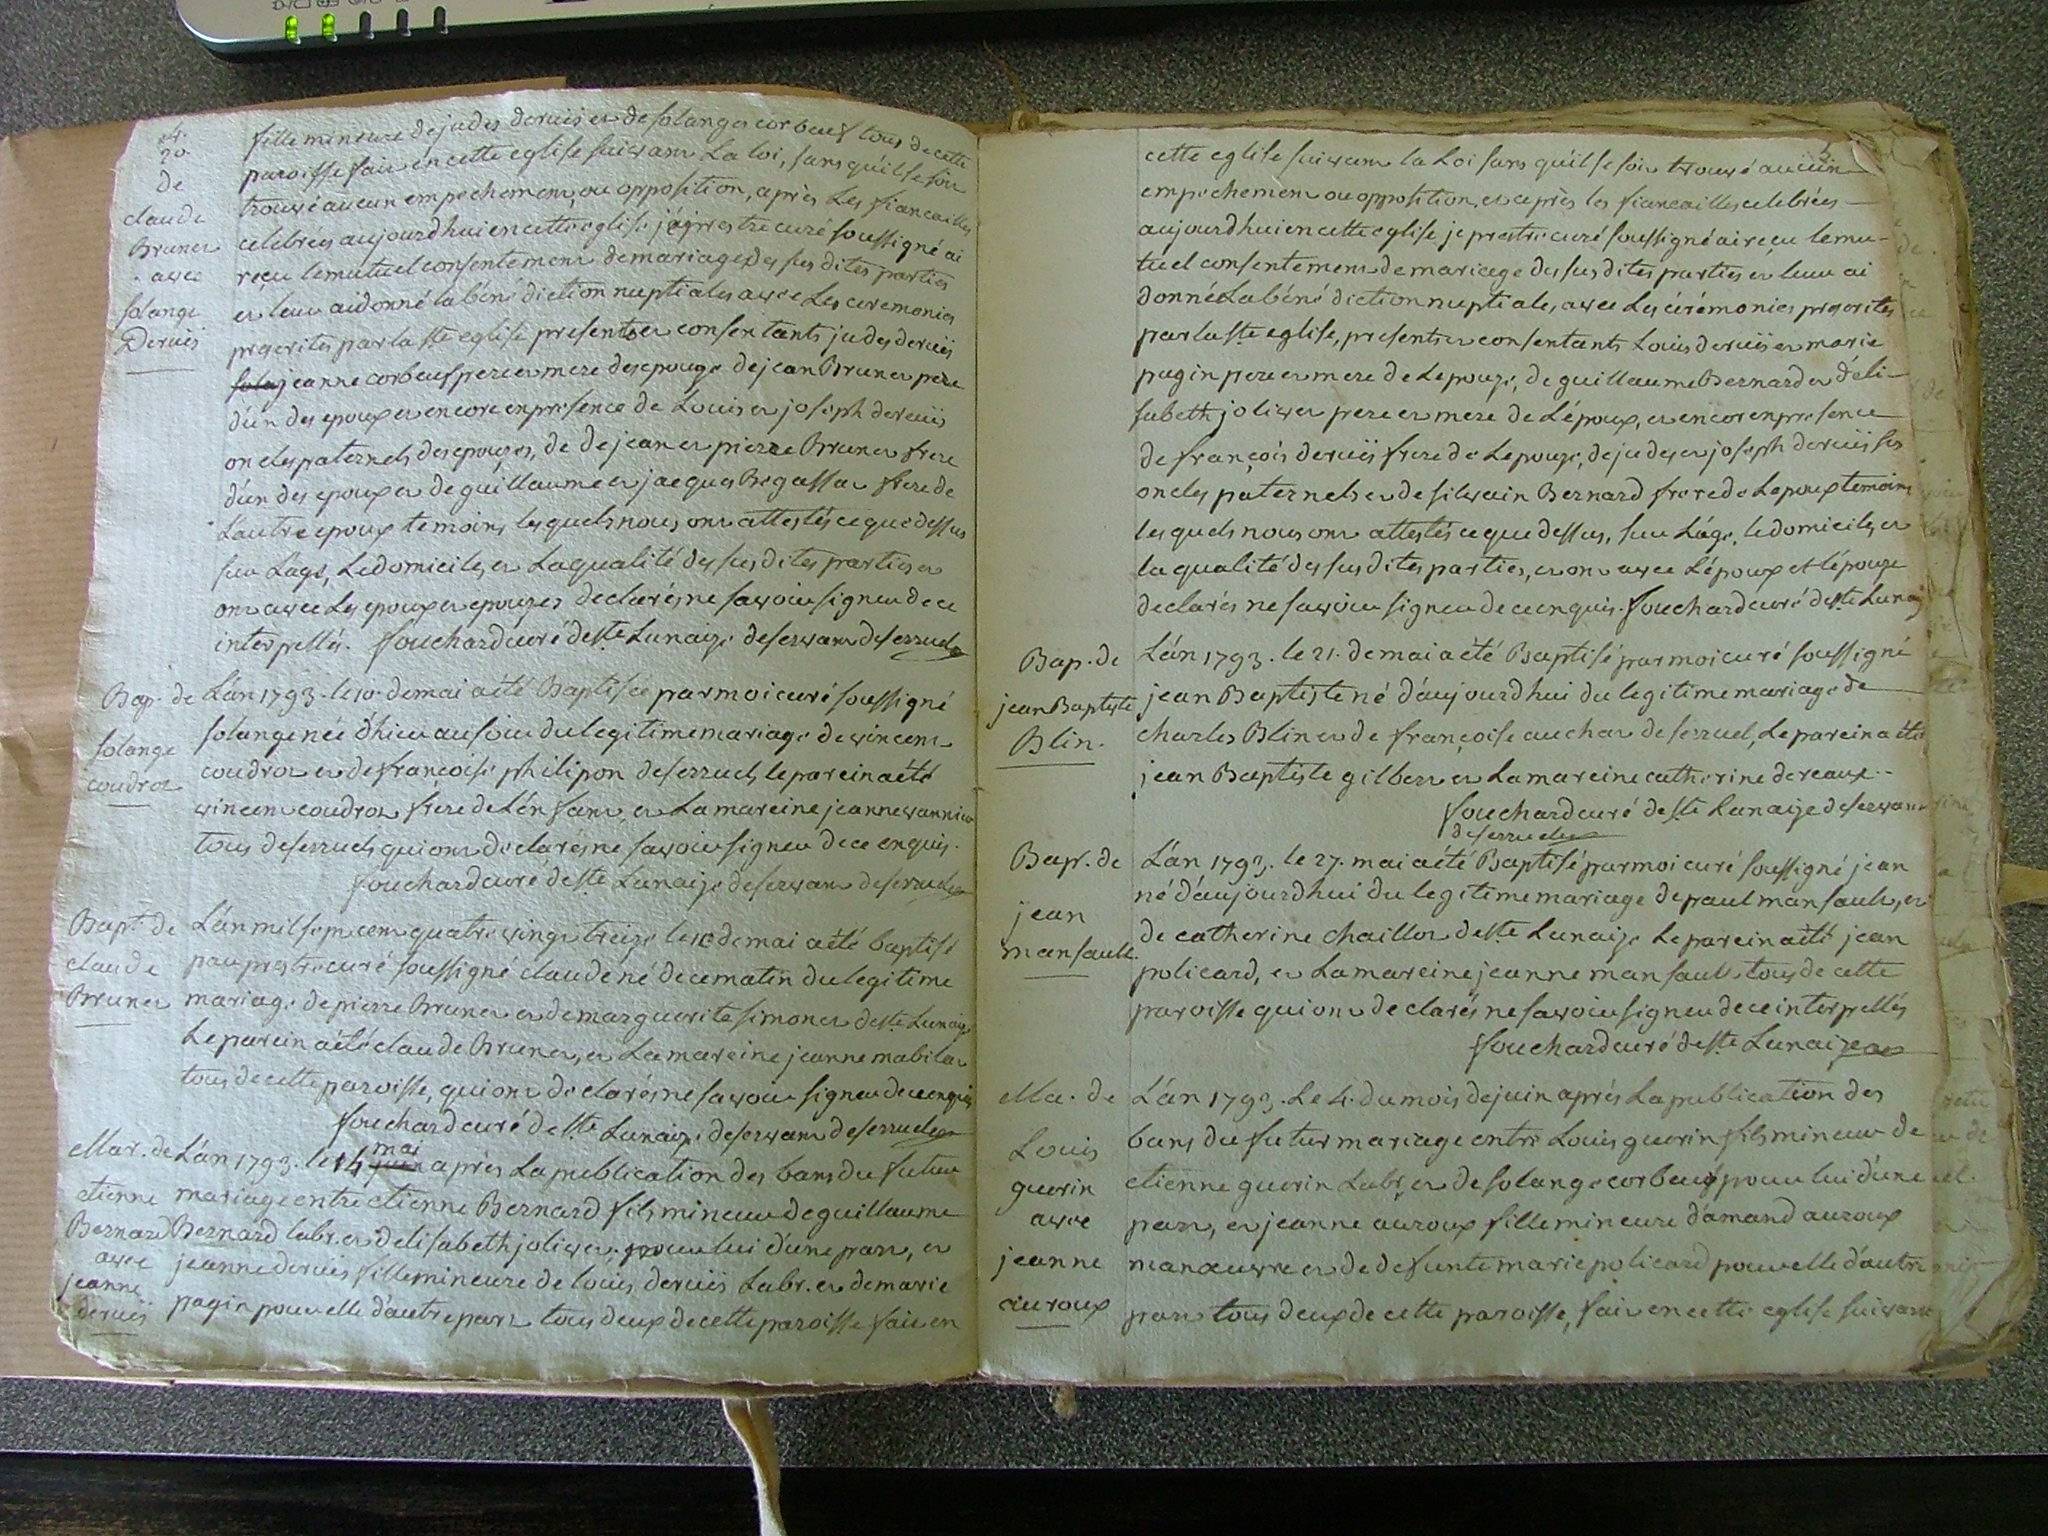 4.
20.
de
claude
Brunet
avec
solange
Deruis
fille mineure de judes deruis et de solanges corbeuf tous de cette
paroisse fait en cette eglise suivant La loi, sans qu'il se soit
trouvé aucun empechement, ou opposition, après Les fiancailles
celebrées aujourd'hui en cette eglise je prestre curé soussigné ai
reçu le mutuel consentement de mariage des susdites parties
et leur ai donné la béné diction nuptiales avec Les ceremonies
prescrites par la ste eglise presents et consentants judes deruis
sola jeanne corbeuf pere et mere des epouze de jean Brunet pere
d'un des epoux et encore en presence de Louis et joseph deruis
oncles paternels des epouzes, de de jean et pierre Brunet frere
d'un des epoux et de guillaume et jacques Begassat frere de
Lautre epoux temoins lesquels nous ont attestés ce que dessus
sur Lage, Le domicile, et La qualité des susdites parties et
ont avec Les epoux et epouzes declarés ne savoir signer de ce
interpellés. fouchard curé de ste Lunaize desservant desserruelles
Bap. de
solange
coudrat
L'an 1793. le 10. de mai a été Baptisée par moi curé soussigné
solange née d'hier au soir du legitime mariage de vincent
coudrot et de francoise philipon de serruels, le parein a été
vincent coudrot frere de L'en fant, et La mareine jeanne vannier
tous de serruels qui ont declarés ne savoir signer de ce enquis.
fouchard curé de ste Lunaize deservant deserruelles
Bapt. de
claude
Brunet
L'an mil sept cent quatre vingt treize le 10 de mai a été baptisé
par prestre curé soussigné claude né de ce matin du legitime
mariage de pierre Brunet et de marguerite simonet de ste Lunaize
Le parein a été claude Brunet, et La mareine jeanne mabilat
tous de cette paroisse, qui ont declarés ne savoir signer de ce enquis
fouchard curé de ste Lunaize deservant deserruelles
Mar. de
etienne
Bernard
avec
jeanne
deruis
L'an 1793. le 14 juin mai après La publication des bans du futur
mariage entre etienne Bernard fils mineur de guillaume
Bernard labr. et d'elisabeth jolivet pour lui d'une part, et
jeanne deruis fille mineure de louis deruis Labr. et de marie
pagin pour elle d'autre part tous deux de cette paroisse fait en
5
cette eglise suivant la Loi sans qu'il se soit trouvé aucun
empechement ou opposition, et après les fiancailles celebrées
aujourd'hui en cette eglise je prestre curé soussigné ai reçu le mu-
tuel consentement de mariage des susdites parties et leur ai
donné La béné diction nuptiale, avec Les cérémonies prescrites
par la ste eglise, presents et consentants Louis deruis et marie
pagin pere et mere de Lepouze, de guillaume Bernard et d'éli-
sabeth jolivet pere et mere de L'époux, et encor en presence
de françois deruis frere de Lepouze, de judes et joseph deruis ses
oncles paternels et de silvain Bernard frere de Lepoux temoins
lesquels nous ont attestés ce que dessus, sur L'age, le domicile, et
la qualité des susdites parties, et ont avec L'époux et L'épouze
declarés ne savoir signer de ce enquis. fouchard curé de ste Lunaiz
Bap. de
jean Baptiste
Blin.
L'an 1793. le 21. de mai a été Baptisé par moi curé soussigné
jean Baptiste né d'aujourd'hui du legitime mariage de
charles Blin et de françoise auchat de serruel, Le parein a été
jean Baptiste gilbert et La mareine catherine dereaux
fouchard curé de ste Lunaize deservant
deserruelles
Bap. de
jean
mansault.
L'an 1793. le 27. mai a été Baptisé par moi curé soussigné jean
né d'aujourd'hui du legitime mariage de paul mansault, et
de catherine chaillot de ste Lunaize Le parein a été jean
policard, et La mareine jeanne mansault tous de cette
paroisse qui ont declarés ne savoir signer de ce interpellés
fouchard curé de ste Lunaize
Ma. de
Louis
guerin
avec
jeanne
auroux
L'an 1793. Le 4. du mois de juin après La publication des
bans du futur mariage entre Louis guerin fils mineur de
etienne guerin Labr. et de solange corbeuf pour lui d'une
part, et jeanne auroux fille mineure d'amand auroux
manœuvre et de defunte marie policard pour elle d'autre
part tous deux de cette paroisse, fait en cette eglise suivant